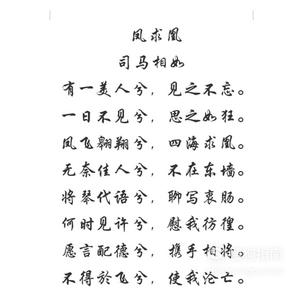 凤求凰
司马相如
有一美人兮，见之不忘。
一日不见兮，思之如狂。
凤飞翱翔兮，四海求凰。
无奈佳人兮，不在东墙。
将琴代语兮，聊写衷肠。
何时见许兮，慰我彷徨。
愿言配德兮，携手相将。
不得於飞兮，使我沦亡。